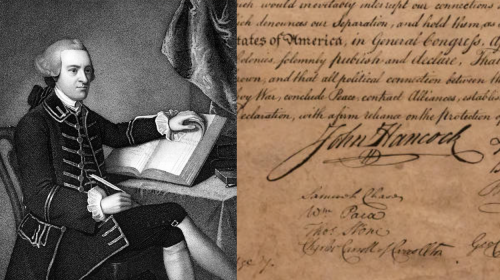 would inevitably interrupt our connections
which denounces our Separation, and hold them, as
States of America, in General Congress, A
Colonies, solemnly publish and declare, That
rown, and that all political connection between t
levy War, conclude Peace, contract Alliances, establis
eclaration, with a firm reliance on the protection of
John Hancock
Samuel Chase
Wm. Paca
Thos. Stone
Charles Carroll of Carrollton
Geo